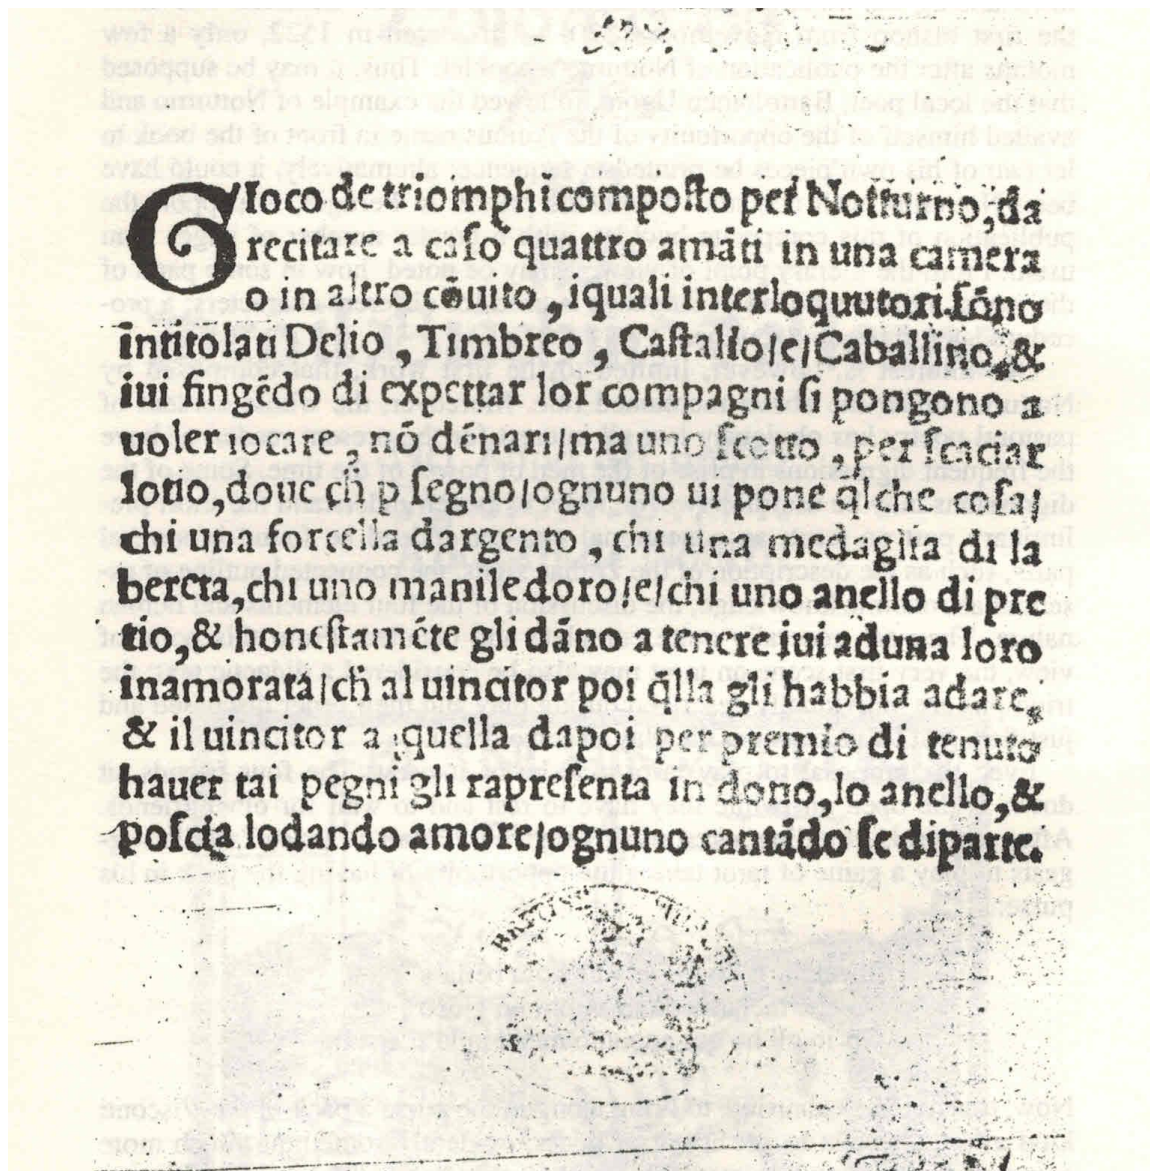 GIoco de triomphi composto per Notturno, da
recitare a caso quattro amāti in una camera
o in altro cōuito, iquali interloquutori sōno
intitolati Delio, Timbreo, Castalio/e/Caballino, &
iui fingēdo di expettar lor compagni si pongono a
uoler iocare, nō dēnari/ma uno scotto, per scaciar
lotio, doue ch̄ p segno/ognuno ui pone q̄lche cosa/
chi una forcella dargento, chi una medaglia di la
bereta, chi uno maniledoro/e/chi uno anello di pre
tio, & honestamēte gli dāno a tenere iui aduna loro
inamorata/ch̄ al uincitor poi q̄lla gli habbia adare,
& il uincitor a quella dapoi per premio di tenuto
hauer tai pegni gli rapresenta in dono, lo anello, &
poscia lodando amore/ognuno cantādo se diparte.